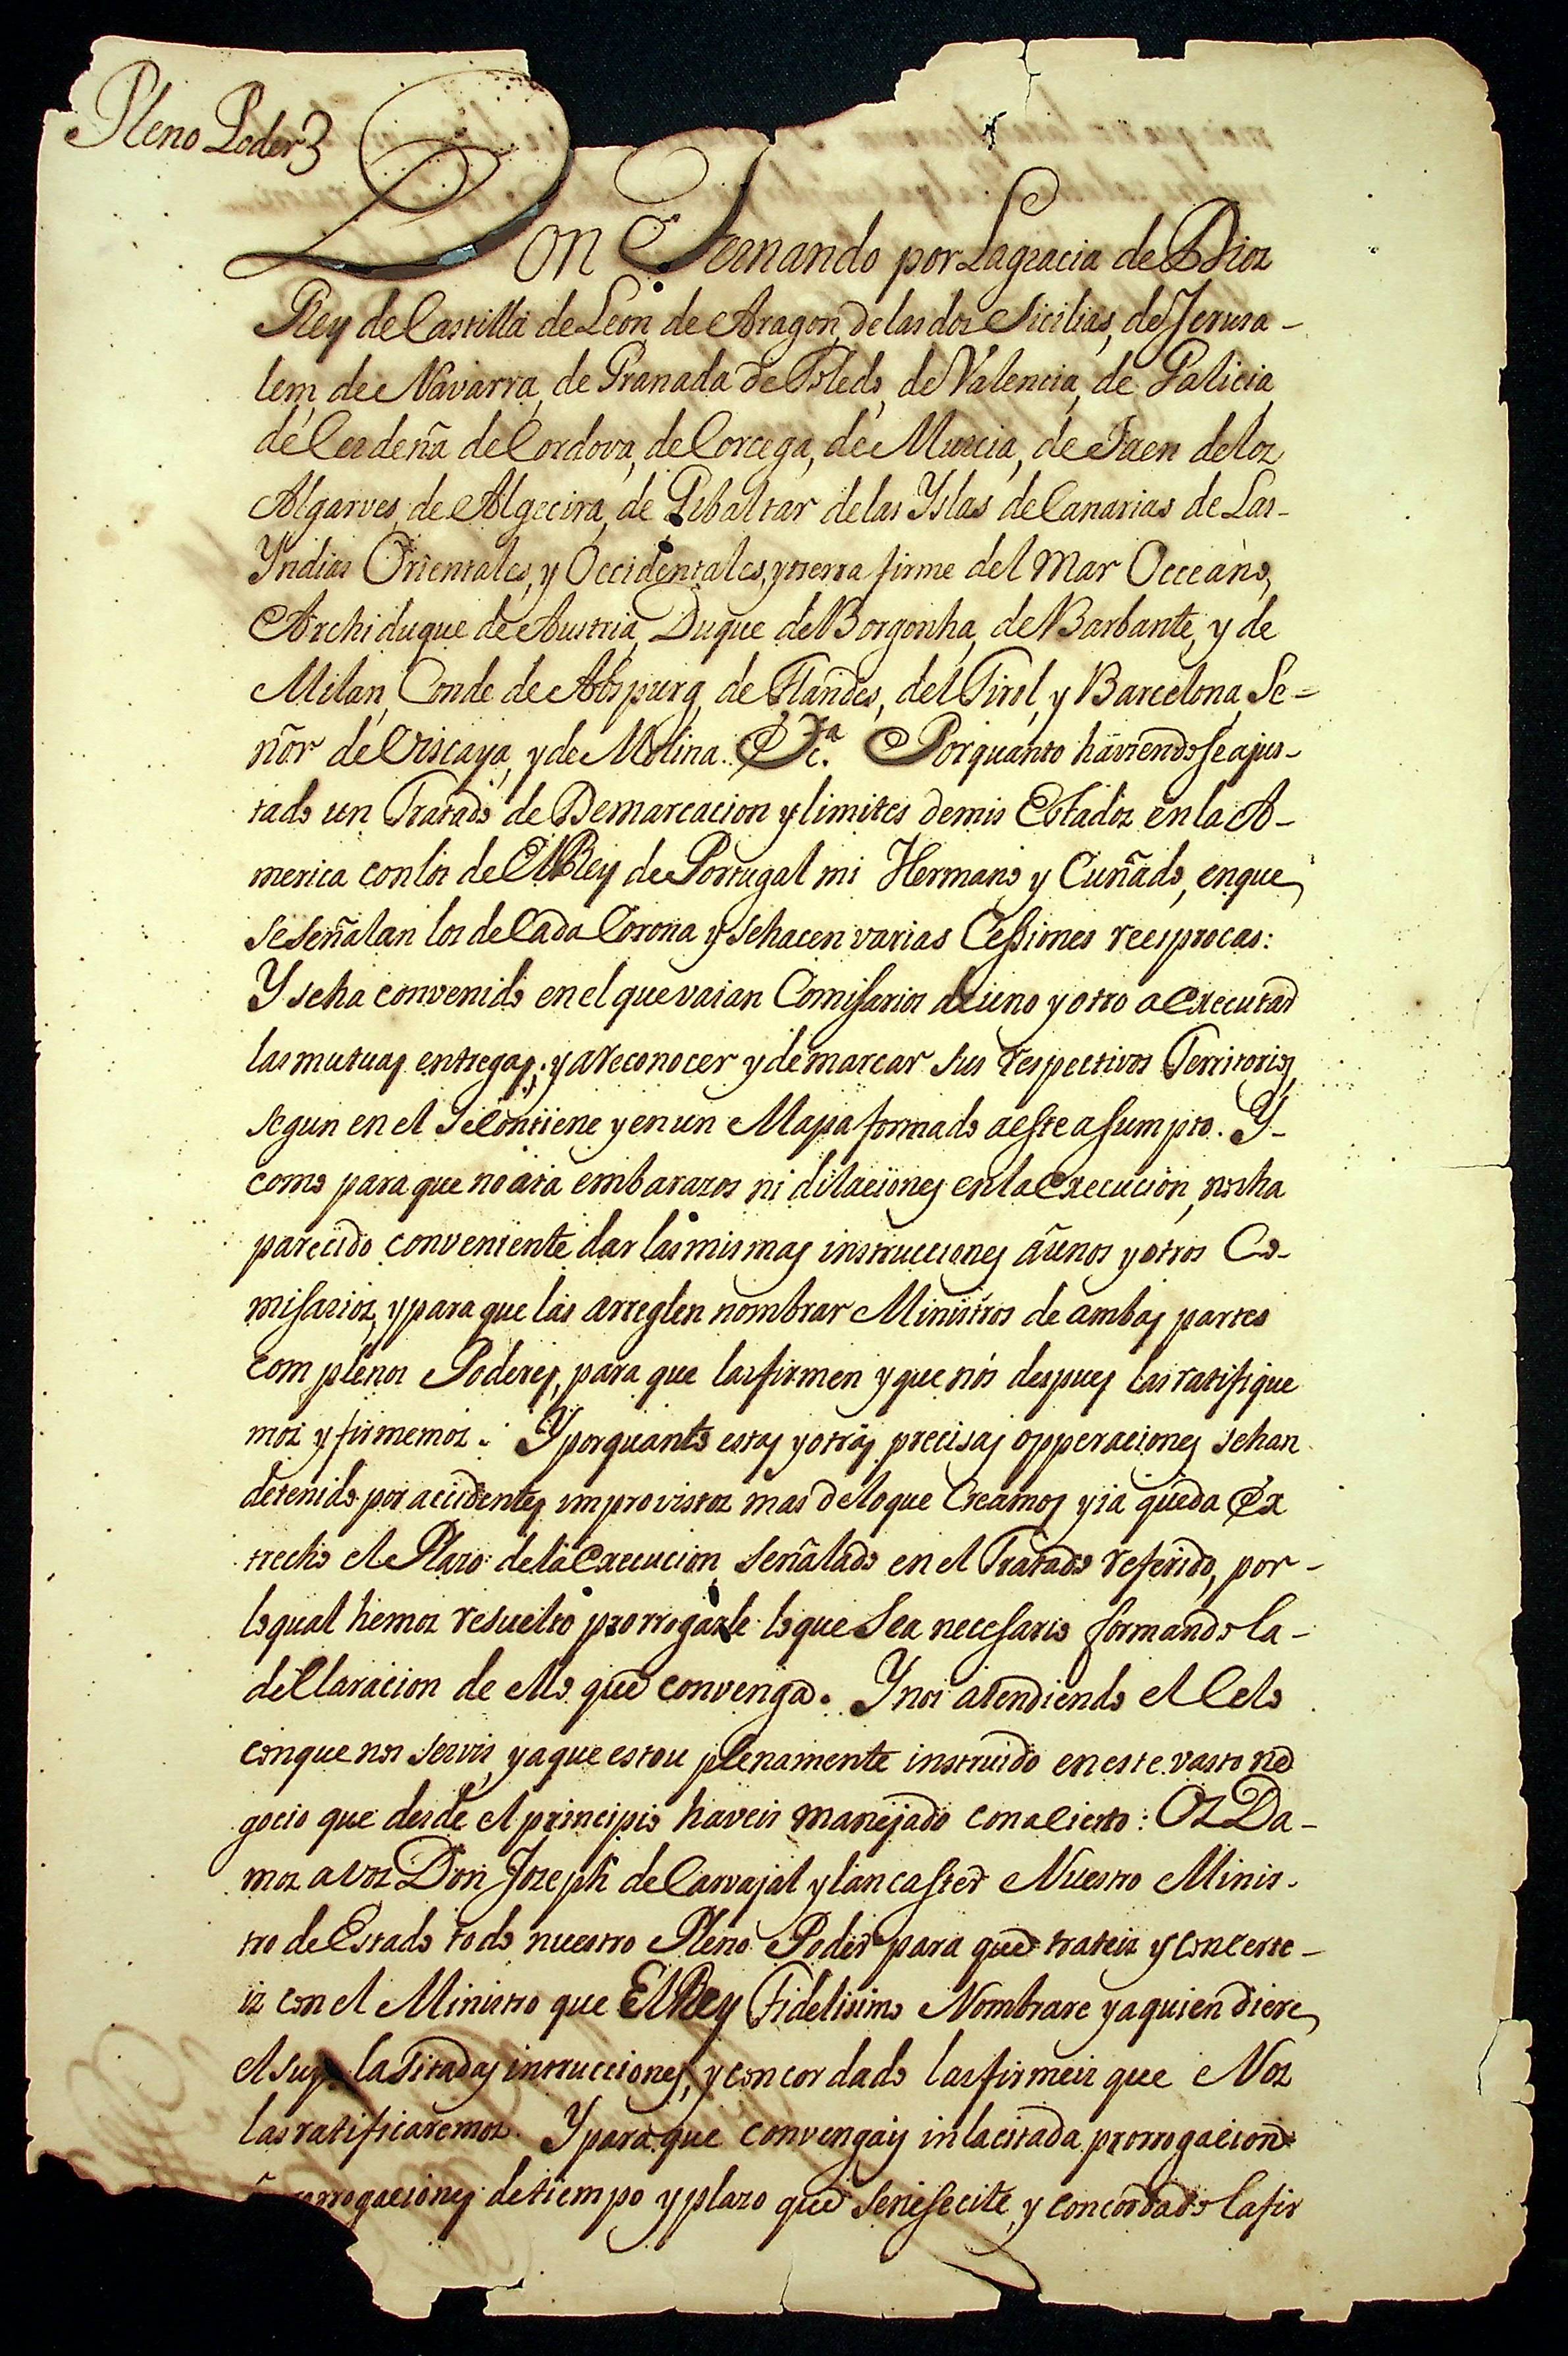 Pleno Poder
Don Fernando por La gracia de Dioz
Rey de Castilla de Leon de Aragon, de las doz Sicilias, de Jerusa-
lem, de Navarra, de Granada de Toledo, de Valencia, de Galicia
de Cerdeña de Cordova, de Corcega, de Murcia, de Jaen de loz
Algarves, de Algecira, de Gibaltar de las Yslas de Canarias de Las-
Yndias Orientales, y Occidentales, y tierra firme del Mar Occeano,
Archiduque de Austria, Duque de Borgonha, de Barbante, y de
Milan, Conde de Abspurg, de Flandes, del Tirol, y Barcelona, Se-
ñor de Viscaya, y de Molina. &c.ª Por quanto haviendose ajus-
tado un Tratado de Demarcacion y limites de mis Estadoz en la A-
merica con los de El Rey de Portugal mi Hermano y Cuñado, en que
se señalan los de Cada Corona y se hacen varias Cessiones reciprocas:
Y se ha convenido en el que vaian Comisarios de uno y otro a executar
las mutuas entregas; y a reconocer y demarcar sus respectivos Territorios
segun en el se Contiene y en un Mapa formado a este asumpto. Y-
como para que no aia embarazos ni dilaciones en la execucion, nos ha
parecido conveniente dar las mismas instrucciones a unos y otros Co-
misarioz, y para que las arreglen nombrar Ministros de ambas partes
com plenos Poderes, para que las firmen y que nós despues las ratifique
moz y firmemoz. Y por quanto estas y otras precisas opperaciones se han
detenido por accidentes improvistoz mas de lo que Creamos y ia queda Ex
trecho el Plazo de la execucion, señalado en el Tratado referido, por-
lo qual hemoz resuelto prorrogarle lo que sea necesario formando la-
decllaracion de ello que convenga. Y nos atendiendo el Celo
con que nos servis, y a que estou plenamente instruido en este vasto ne
gocio que desde el principio haveis manejado con acierto: Oz Da-
moz a voz Don Jozeph de Carvajal y lancaster Nuestro Minis-
tro de Estado todo nuestro Pleno Poder para que trateiz y concerte-
iz con el Ministro que El Rey Fidelisimo Nombrare y a quien diere
el suyo las citadas instrucciones, y concordado las firmeiz que Noz
las ratificaremoz. Y para que convengais in la citada prorrogacion
prorrogaciones de tiempo y plazo que se necesite, y concordado la fir